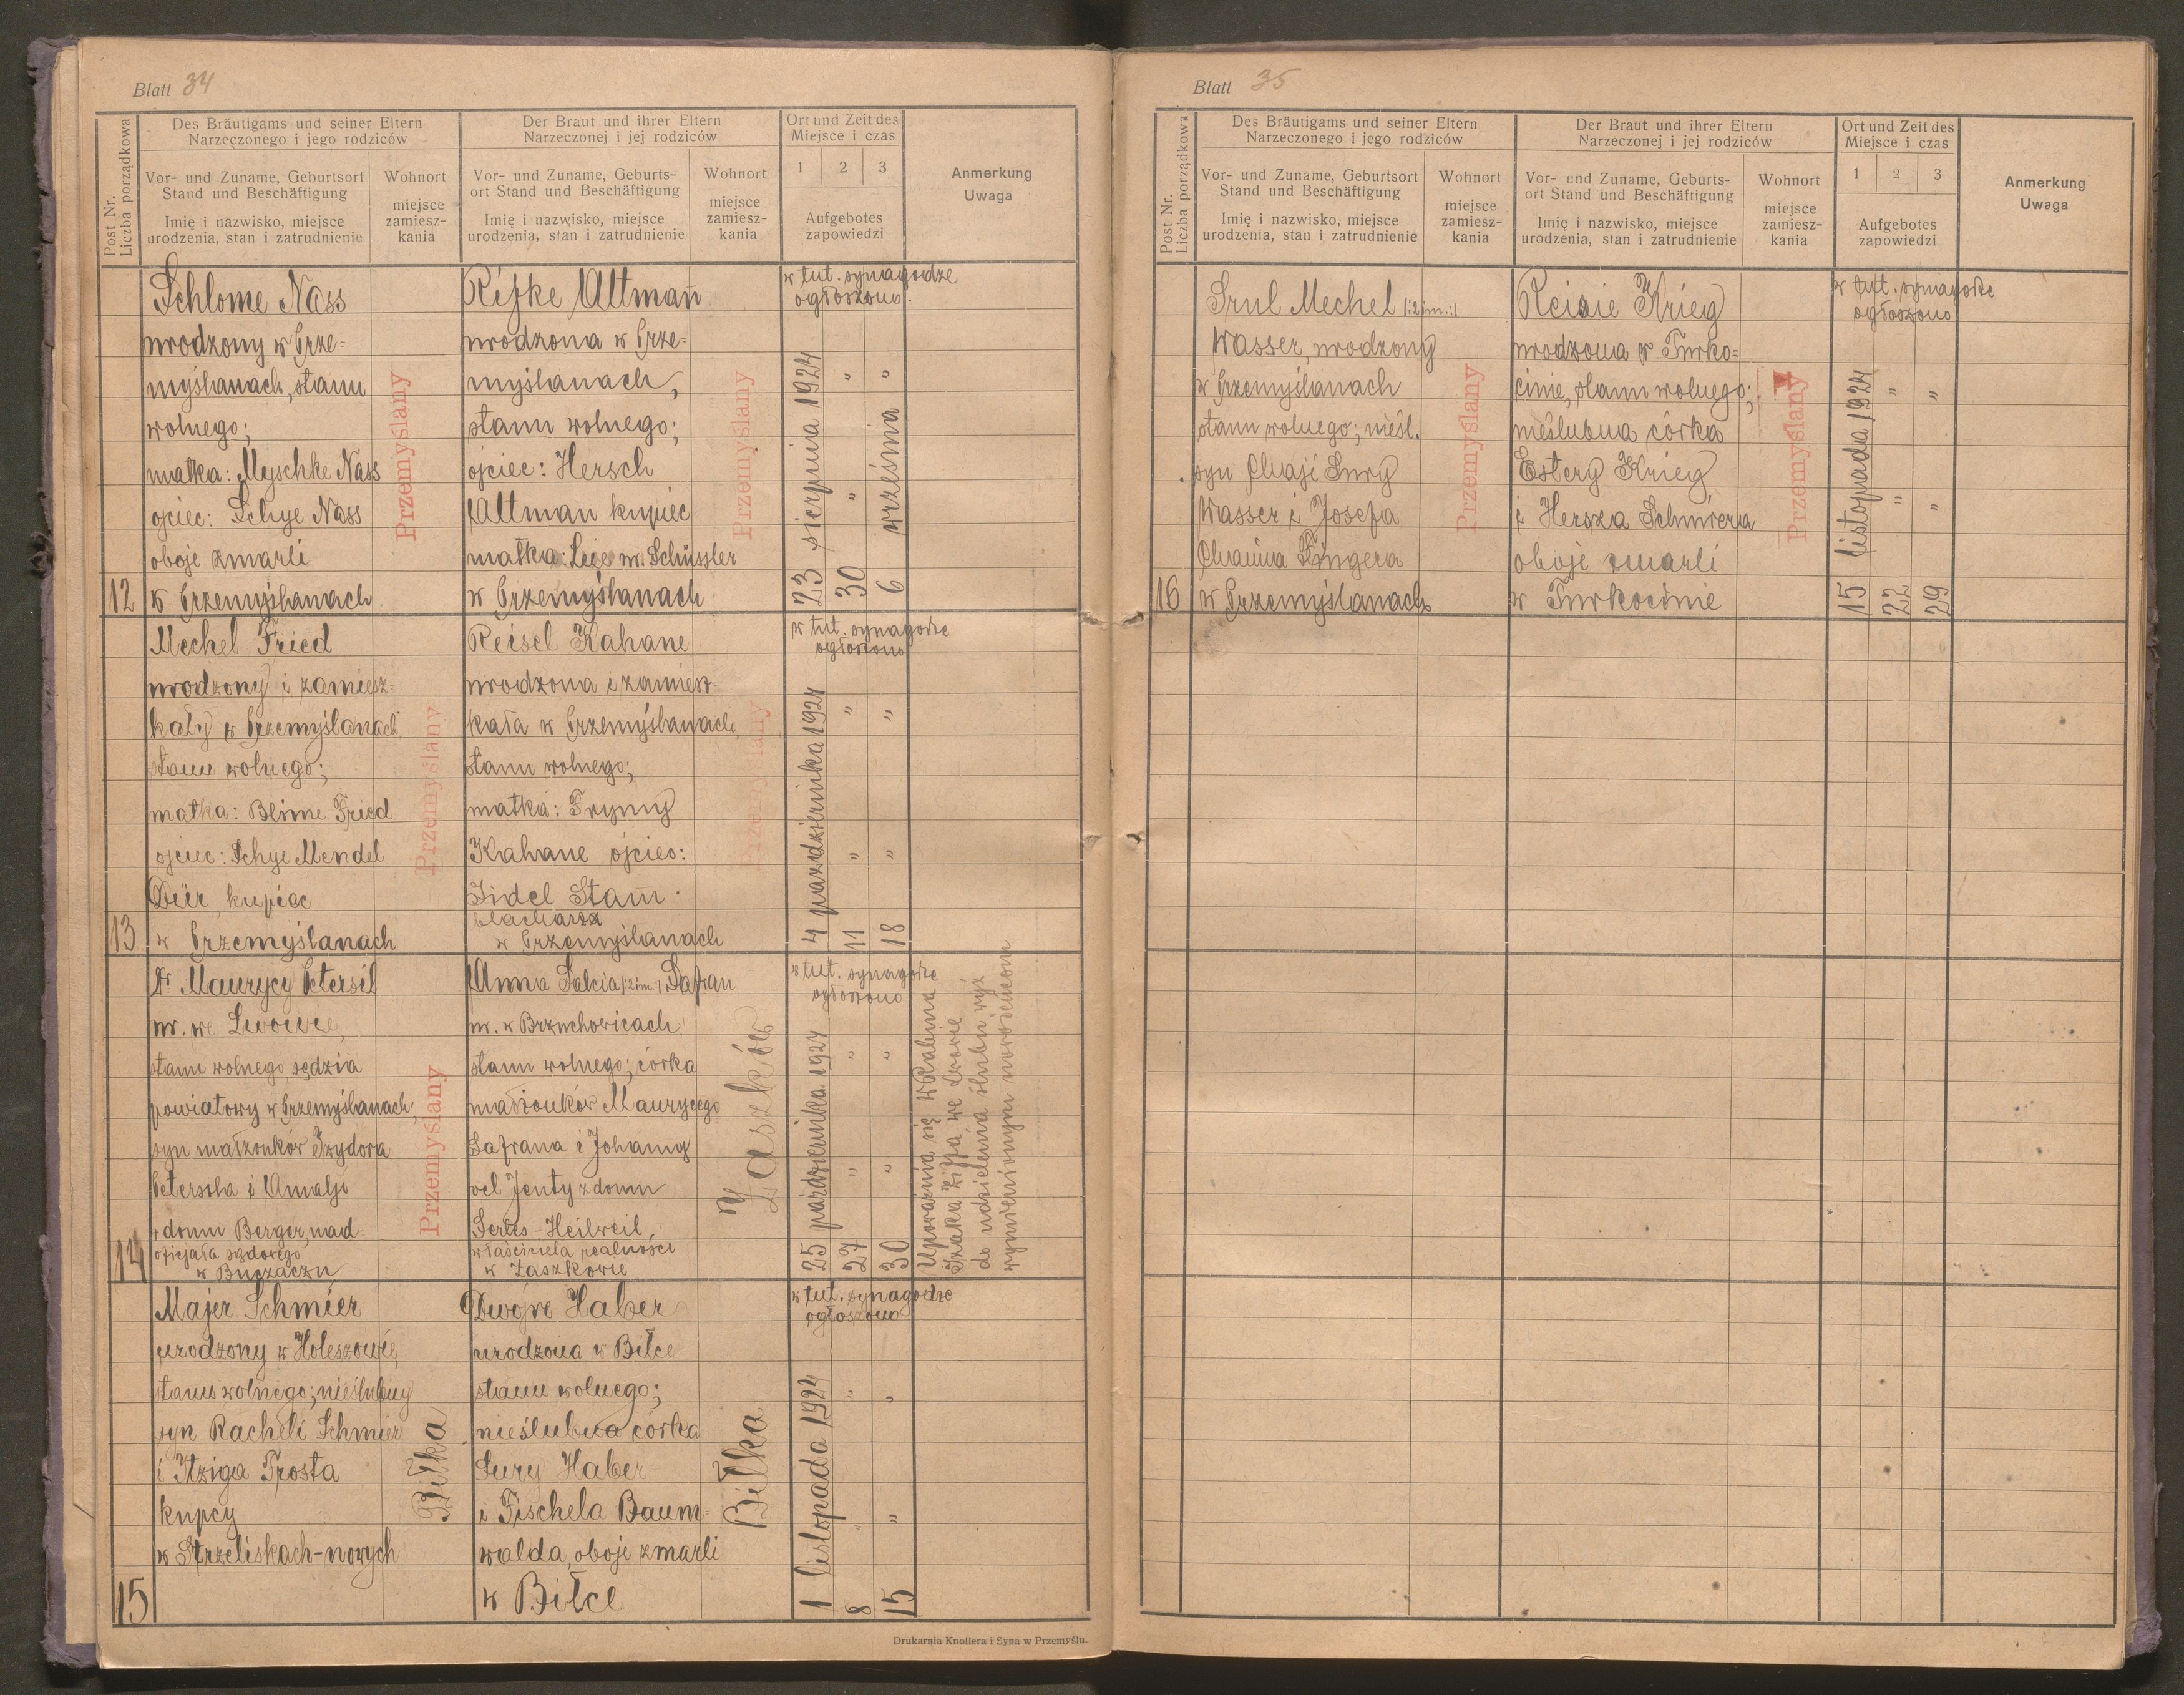 Blatt 34
Post Nr.
Liczba porządkowa
Des Bräutigams und seiner Eltern
Narzeczonego i jego rodziców
Der Braut und ihrer Eltern
Narzeczonej i jej rodziców
Ort und Zeit des
Miejsce i czas
Anmerkung
Uwaga
Vor- und Zuname, Geburtsort
Stand und Beschäftigung
Imię i nazwisko, miejsce
urodzenia, stan i zatrudnienie
Wohnort
miejsce
zamiesz-
kania
Vor- und Zuname, Geburts-
ort Stand und Beschäftigung
Imię i nazwisko, miejsce
urodzenia, stan i zatrudnienie
Wohnort
miejsce
zamiesz-
kania
1 2 3
Aufgebotes
zapowiedzi
12
Schlome Nass
urodzony w Prze-
myślanach, stanu
wolnego;
matka: Myschke Nass
ojciec: Schye Nass
oboje zmarli
w Przemyślanach
Przemyślany
Rifke Altman
urodzona w Prze-
myślanach,
stanu wolnego;
ojciec: Hersch
Altman kupiec
matka: Leie ur. Schüssler
w Przemyślanach
Przemyślany
w tut. synagodze
ogłoszono.
23 sierpnia 1924
30 " "
6 września "
13
Mechel Fried
urodzony i zamiesz-
kały w Przemyślanach
stanu wolnego;
matka: Blime Fried
ojciec: Schye Mendel
Dür, kupiec
w Przemyślanach
Przemyślany
Reisel Kahane
urodzona i zamiesz-
kała w Przemyślanach,
stanu wolnego;
matka: Frymy
Kahane ojciec:
Jidel Stam
blacharz
w Przemyślanach
Przemyślany
w tut. synagodze
ogłoszono
4 października 1924
11 " "
18 " "
14
Dr Maurycy Petersil
ur. we Lwowie,
stanu wolnego, sędzia
powiatowy w Przemyślanach,
syn małżonków Izydora
Petersila i Amalji
z domu Berger, nad-
oficjała sądowego
w Buczaczu
Przemyślany
Anna Salcia |:2 im.:| Safran
ur. w Brzuchowicach
stanu wolnego; córka
małżonków Maurycego
Safrana i Johanny
vel Jenty z domu
Serles-Heilweil,
właściciela realności
w Zaszkowie
Zaszków
w tut. synagodze
ogłoszono
25 października 1924
27 " "
30 " "
Upoważnia się WRabina
Izaka Ziffa we Lwowie
do udzielenia ślubu wyż
wymienionym nowożeńcom
15
Majer Schmier
urodzony w Holeszowie,
stanu wolnego; nieślubny
syn Racheli Schmier
i Itziga Frosta
kupcy
w Strzeliskach-nowych
Biłka
Dwojre Haber
urodzona w Biłce
stanu wolnego;
nieślubna córka
Sury Haber
i Fischela Baum-
walda, oboje zmarli
w Biłce
Biłka
w tut. synagodze
ogłoszono
1 listopada 1924
8 " "
15 " "
Drukarnia Knollera i Syna w Przemyślu.
Blatt 35
Post Nr.
Liczba porządkowa
Des Bräutigams und seiner Eltern
Narzeczonego i jego rodziców
Der Braut und ihrer Eltern
Narzeczonej i jej rodziców
Ort und Zeit des
Miejsce i czas
Anmerkung
Uwaga
Vor- und Zuname, Geburtsort
Stand und Beschäftigung
Imię i nazwisko, miejsce
urodzenia, stan i zatrudnienie
Wohnort
miejsce
zamiesz-
kania
Vor- und Zuname, Geburts-
ort Stand und Beschäftigung
Imię i nazwisko, miejsce
urodzenia, stan i zatrudnienie
Wohnort
miejsce
zamiesz-
kania
1 2 3
Aufgebotes
zapowiedzi
16
Srul Mechel |:2 im.:|
Wasser, urodzony
w Przemyślanach
stanu wolnego; nieśl.
syn Chaji Sury
Wasser i Josefa
Chaima Fingera
w Przemyślanach
Przemyślany
Reisie Krieg
urodzona w Turko-
cinie, stanu wolnego;
nieślubna córka
Estery Krieg
i Hersza Schmiera
oboje zmarli
w Turkocinie
Przemyślany
w tut. synagodze
ogłoszono
15 listopada 1924
22 " "
29 " "